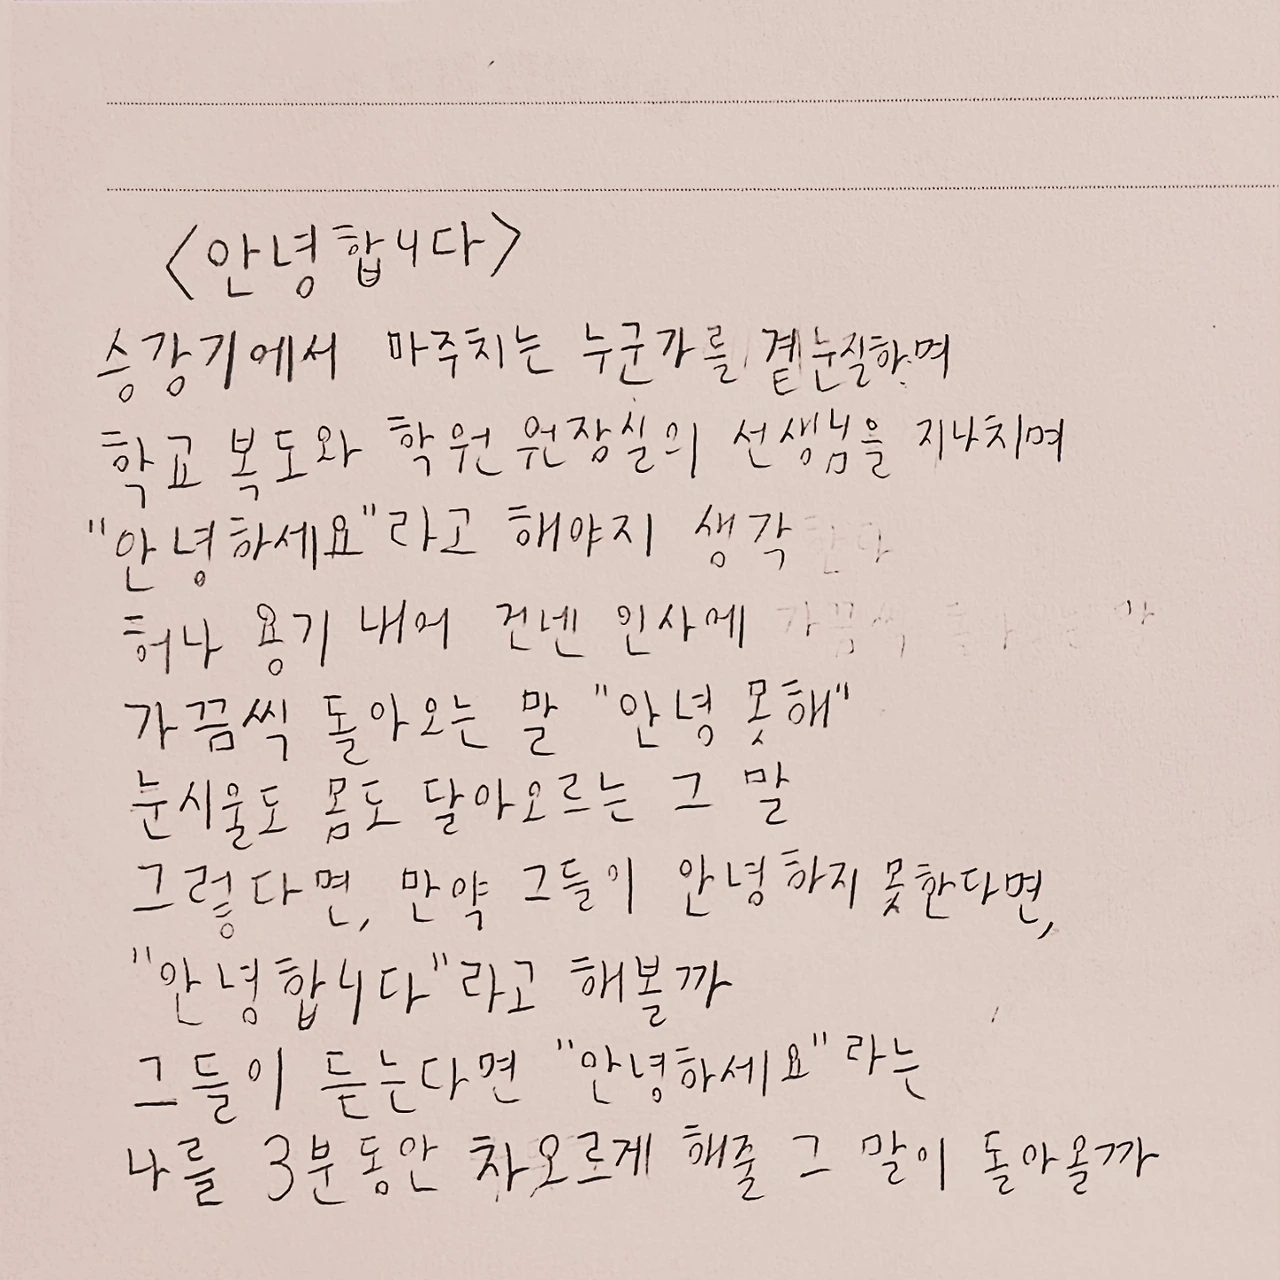 <안녕합니다>
승강기에서 마주치는 누군가를 곁눈질하며
학교 복도와 학원 원장실의 선생님을 지나치며
"안녕하세요"라고 해야지 생각
허나 용기 내어 건넨 인사에
가끔씩 돌아오는 말 "안녕 못해"
눈시울도 몸도 달아오르는 그 말
그렇다면, 만약 그들이 안녕하지 못한다면,
"안녕합니다"라고 해볼까
그들이 듣는다면 "안녕하세요"라는
나를 3분동안 차오르게 해줄 그 말이 돌아올까